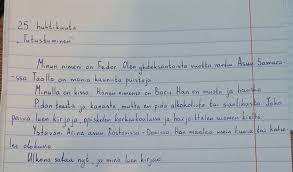 25. huhtikuuta
"Tutustuminen"
Minun nimeni on Fedor. Olen yhdeksäntoista vuotta vanha. Asun Samara-
ssa. Täällä on monia kauniita puistoja.
Minulla on kissa. Hänen nimensä on Boris. Hän on musta ja hauska.
Pidän teestä ja kanasta, mutta en pidä alkoholista tai suolikasta. Joka
päivä luen kirjoja, opiskelen korkeakoulussa ja harjoittelen suomen kieltä.
Ystäväni Arina asuu Rostovissa-Donissa. Hän maalaa kuvia tai katse-
lee elokuvia.
Ulkona sataa nyt, ja minä luen kirjaa.